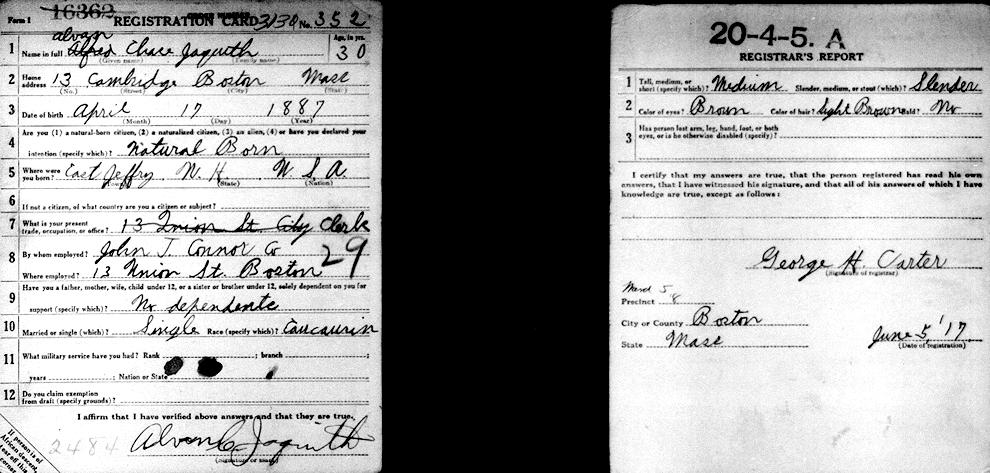 Form 1 16362 REGISTRATION CARD 3138 No. 352
alvan
1 Name in full Alfred Chase Jaquith Age, in yrs. 30
(Given name) (Family name)
2 Home address 13 Cambridge Boston Mass
(No.) (Street) (City) (State)
3 Date of birth April 17 1887
(Month) (Day) (Year)
4 Are you (1) a natural-born citizen, (2) a naturalized citizen, (3) an alien, (4) or have you declared your
intention (specify which)? Natural Born
5 Where were you born? East Jeffry N. H. U. S. A.
(Town) (State) (Nation)
6 If not a citizen, of what country are you a citizen or subject?
7 What is your present trade, occupation, or office? 13 Union St. City Clerk
8 By whom employed? John T. Connor Co 29
Where employed? 13 Union St. Boston
9 Have you a father, mother, wife, child under 12, or a sister or brother under 12, solely dependent on you for
support (specify which)? No dependents
10 Married or single (which)? Single Race (specify which)? Caucausin
11 What military service have you had? Rank ; branch ;
years ; Nation or State
12 Do you claim exemption from draft (specify grounds)?
I affirm that I have verified above answers and that they are true.
2484 Alvan C. Jaquith
(Signature or mark)
If person is of
African descent,
tear off this
corner.
20-4-5. A
REGISTRAR'S REPORT
1 Tall, medium, or short (specify which)? Medium Slender, medium, or stout (which)? Slender
2 Color of eyes? Brown Color of hair? Light Brown Bald? No
3 Has person lost arm, leg, hand, foot, or both
eyes, or is he otherwise disabled (specify)?
I certify that my answers are true, that the person registered has read his own
answers, that I have witnessed his signature, and that all of his answers of which I have
knowledge are true, except as follows:
George H. Carter
(Signature of registrar)
Ward 5
Precinct 8
City or County Boston
State Mass June 5, '17
(Date of registration)